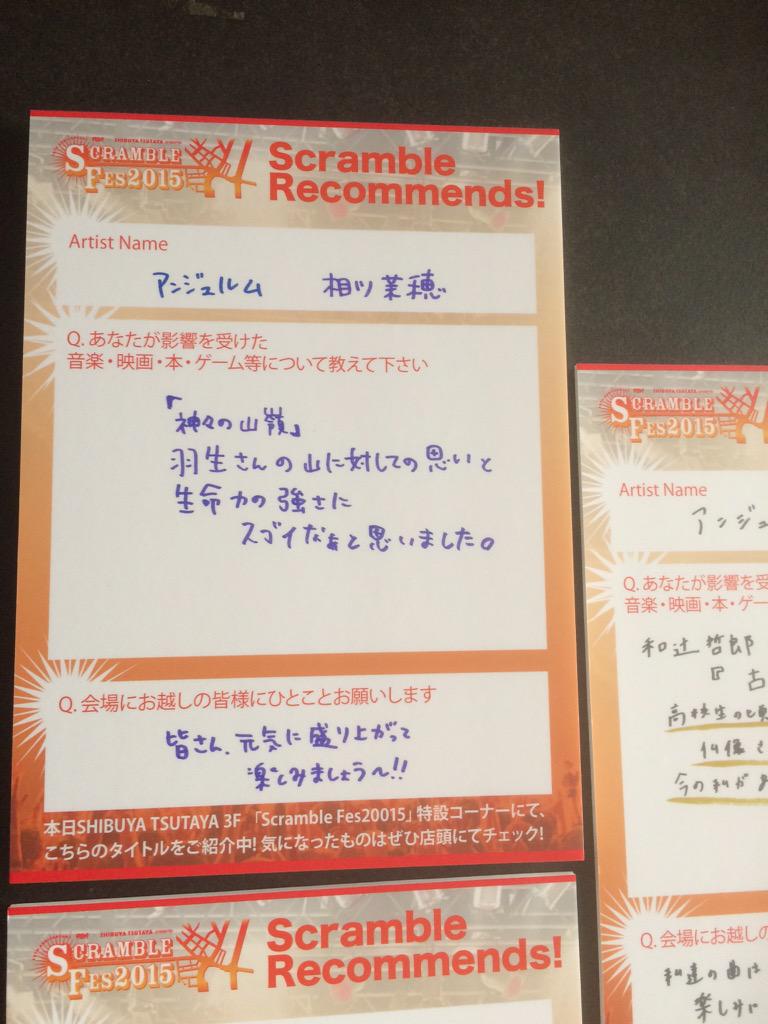 SHIBUYA TSUTAYA
SCRAMBLE
FES2015
Scramble
Recommends!
Artist Name
アンジュルム 相川茉穂
Q. あなたが影響を受けた
音楽・映画・本・ゲーム等について教えて下さい
「神々の山嶺」
羽生さんの山に対しての思いと
生命力の強さに
スゴイなぁと思いました。
Q. 会場にお越しの皆様にひとことお願いします
皆さん、元気に盛り上がって
楽しみましょう〜!!
本日SHIBUYA TSUTAYA 3F 「Scramble Fes20015」特設コーナーにて、
こちらのタイトルをご紹介中! 気になったものはぜひ店頭にてチェック!
SHIBUYA TSUTAYA
SCRAMBLE
FES2015
Scramble
Recommends!
SCRAMBLE
FES2015
Artist Name
アンジュ
Q. あなたが影響を受
音楽・映画・本・ゲー
和辻哲郎
『古
高校生の頃
仏像さ
今の私があ
Q. 会場にお越しの
私達の曲は
楽しみに